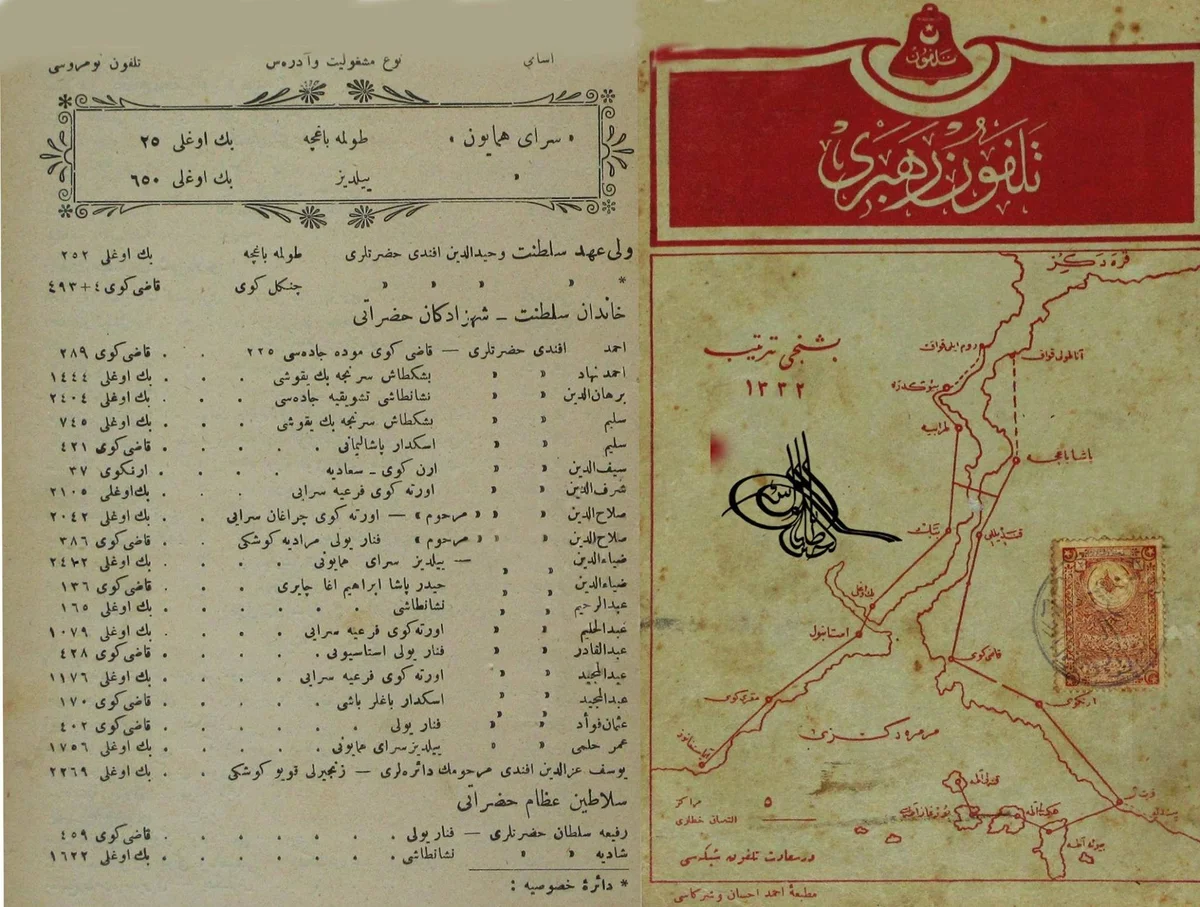 اسامي نوع مشغوليت وآدرەس تلفون نومروسى
« سراى همايون » طولمه باغچه بك اوغلى ٢٥
» ييلديز بك اوغلى ٦٥٠
ولى عهد سلطنت وحيدالدين افندى حضرتلرى طولمه باغچه بك اوغلى ٢٥٢
* » » » » چنكل كوى قاضى كوى ٤+٤٩٣
خاندان سلطنت ـ شهزادكان حضراتى
احمد افندى حضرتلرى — قاضى كوى موده جاده سى ٢٢٥ . . قاضى كوى ٢٨٩
احمد نهاد » » بشكطاش سرنجه بك يقوشى . . . بك اوغلى ١٤٤٤
برهان الدين » » نشانطاشى تشويقيه جاده سى . . . بك اوغلى ٢٤٠٤
سليم » » بشكطاش سرنجه بك يقوشى . . . بك اوغلى ٧٤٥
سليم » » اسكدار پاشاليمانى . . . . قاضى كوى ٤٢١
سيف الدين » » ارن كوى ـ سعاديه . . . . ارنكوى ٣٧
شرف الدين » » اورته كوى فرعيه سرايى . . . بك اوغلى ٢١٠٥
صلاح الدين » » « مرحوم » — اورته كوى چراغان سرايى . . بك اوغلى ٢٠٤٢
صلاح الدين » » « مرحوم » فنار يولى مراديه كوشكى . . قاضى كوى ٣٨٦
ضياء الدين » » — ييلديز سراى همايونى . . . بك اوغلى
ضياء الدين » » حيدر پاشا ابراهيم اغا چايرى . . . قاضى كوى ١٣٦
عبدالرحيم » » نشانطاشى . . . . . بك اوغلى ١٦٥
عبدالحليم » » اورته كوى فرعيه سرايى . . . بك اوغلى ١٠٧٩
عبدالقادر » » فنار يولى استاسيونى . . . . قاضى كوى ٤٢٨
عبدالمجيد » » اورته كوى فرعيه سرايى . . . بك اوغلى ١١٧٦
عبدالمجيد » » اسكدار باغلر باشى . . . . قاضى كوى ١٧٠
عثمان فوأد » » فنار يولى . . . . . قاضى كوى ٤٠٢
عمر حلمى » » ييلديز سراى همايونى . . . . بك اوغلى ١٧٥٦
يوسف عزالدين افندى مرحومك دائره لرى — زنجيرلى قويو كوشكى . . بك اوغلى ٢٢٦٩
سلاطين عظام حضراتى
رفيعه سلطان حضرتلرى — فنار يولى . . . . . . قاضى كوى ٤٥٩
شاديه » » نشانطاشى . . . . . . بك اوغلى ١٦٢٢
* دائرۀ خصوصيه :
تلفون
تلفون رهبرى
قره دكز
بشنجى ترتيب
١٣٣٢
روم ايلى قواق
آناطولى قواق
طرابيه
پاشا باغچه
ببك
قنديللى
استانبول
قاضى كوى
ارنكوى
مقرى كوى
مرمره دكزى
هيبلى اطه
بيوك اطه
مراكز ٥
التصاق خطلرى
درسعادت تلفون شبكه سى
مطبعۀ احمد احسان وشركاسى